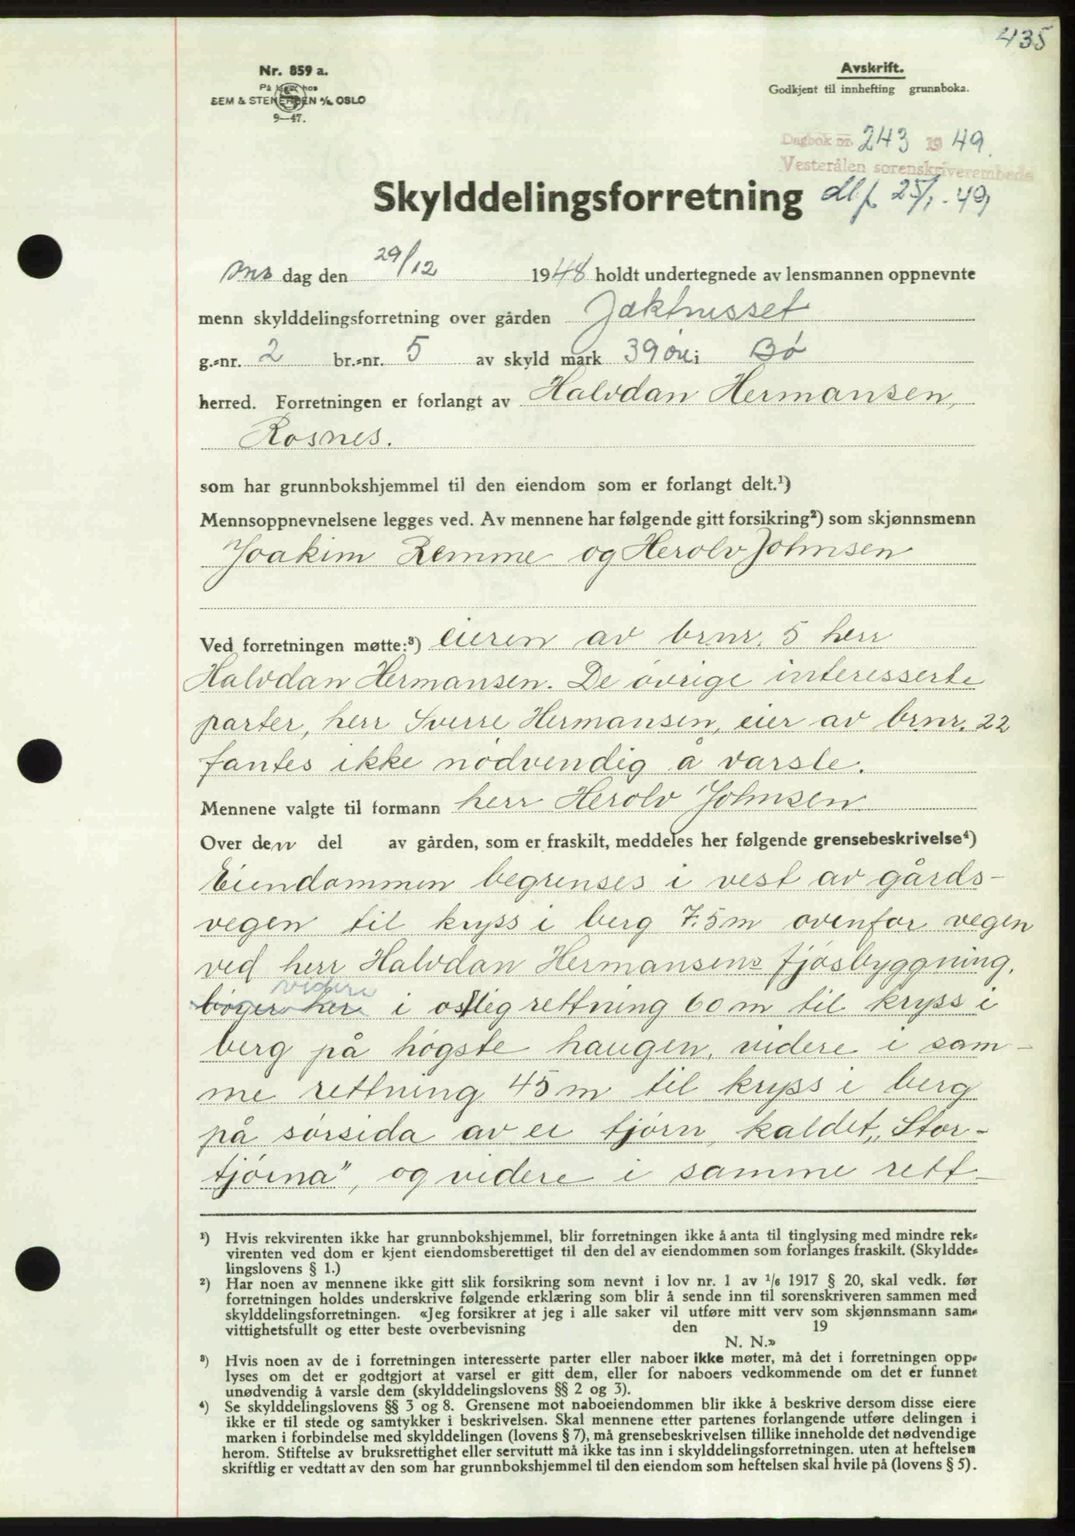 435
Nr. 859 a.
På lager hos
SEM & STENERSEN A/S OSLO
9—47.
Avskrift.
Godkjent til innhefting grunnboka.
Dagbok nr. 243 1949.
Vesterålen sorenskriverembede
25/1-49,
Skylddelingsforretning
Ons dag den 29/12 1948 holdt undertegnede av lensmannen oppnevnte
menn skylddelingsforretning over gården Jakthusset
g.-nr. 2 br.-nr. 5 av skyld mark 39 øre i Bö
herred. Forretningen er forlangt av Halvdan Hermansen,
Rosnes.
som har grunnbokshjemmel til den eiendom som er forlangt delt.¹)
Mennsoppnevnelsene legges ved. Av mennene har følgende gitt forsikring²) som skjønnsmenn
Joakim Remme og Herolv Johnsen
Ved forretningen møtte:³) eieren av br.nr. 5 herr
Halvdan Hermansen. De övrige interesserte
parter, herr Sverre Hermansen, eier av br.nr. 22
fantes ikke nödvendig å varsle.
Mennene valgte til formann herr Herolv Johnsen
Over den del av gården, som er fraskilt, meddeles her følgende grensebeskrivelse⁴)
Eiendommen begrenses i vest av gårds-
vegen til kryss i berg 7.5 m ovenfor vegen
ved herr Halvdan Hermansens fjösbyggning,
videre
böyer her i ostlig rettning 60 m til kryss i
berg på högste haugen, videre i sam-
me rettning 45 m til kryss i berg
på sörsida av ei tjörn, kaldet „Stor-
tjörna", og videre i samme rett-
¹) Hvis rekvirenten ikke har grunnbokshjemmel, blir forretningen ikke å anta til tinglysing med mindre rek-
virenten ved dom er kjent eiendomsberettiget til den del av eiendommen som forlanges fraskilt. (Skyldde-
lingslovens § 1.)
²) Har noen av mennene ikke gitt slik forsikring som nevnt i lov nr. 1 av 1/6 1917 § 20, skal vedk. før
forretningen holdes underskrive følgende erklæring som blir å sende inn til sorenskriveren sammen med
skylddelingsforretningen. «Jeg forsikrer at jeg i alle saker vil utføre mitt verv som skjønnsmann sam-
vittighetsfullt og etter beste overbevisning den 19
N. N.»
³) Hvis noen av de i forretningen interesserte parter eller naboer ikke møter, må det i forretningen opp-
lyses om det er godtgjort at varsel er gitt dem, eller for naboers vedkommende om det er funnet
unødvendig å varsle dem (skylddelingslovens §§ 2 og 3).
⁴) Se skylddelingslovens §§ 3 og 8. Grensene mot naboeiendommen blir ikke å beskrive dersom disse eiere
ikke er til stede og samtykker i beskrivelsen. Skal mennene etter partenes forlangende utføre delingen i
marken i forbindelse med skylddelingen (lovens § 7), må grensebeskrivelsen tillike inneholde det nødvendige
herom. Stiftelse av bruksrettighet eller servitutt må ikke tas inn i skylddelingsforretningen. uten at heftelsen
skriftlig er vedtatt av den som har grunnbokshjemmel til den eiendom som heftelsen skal hvile på (lovens § 5).